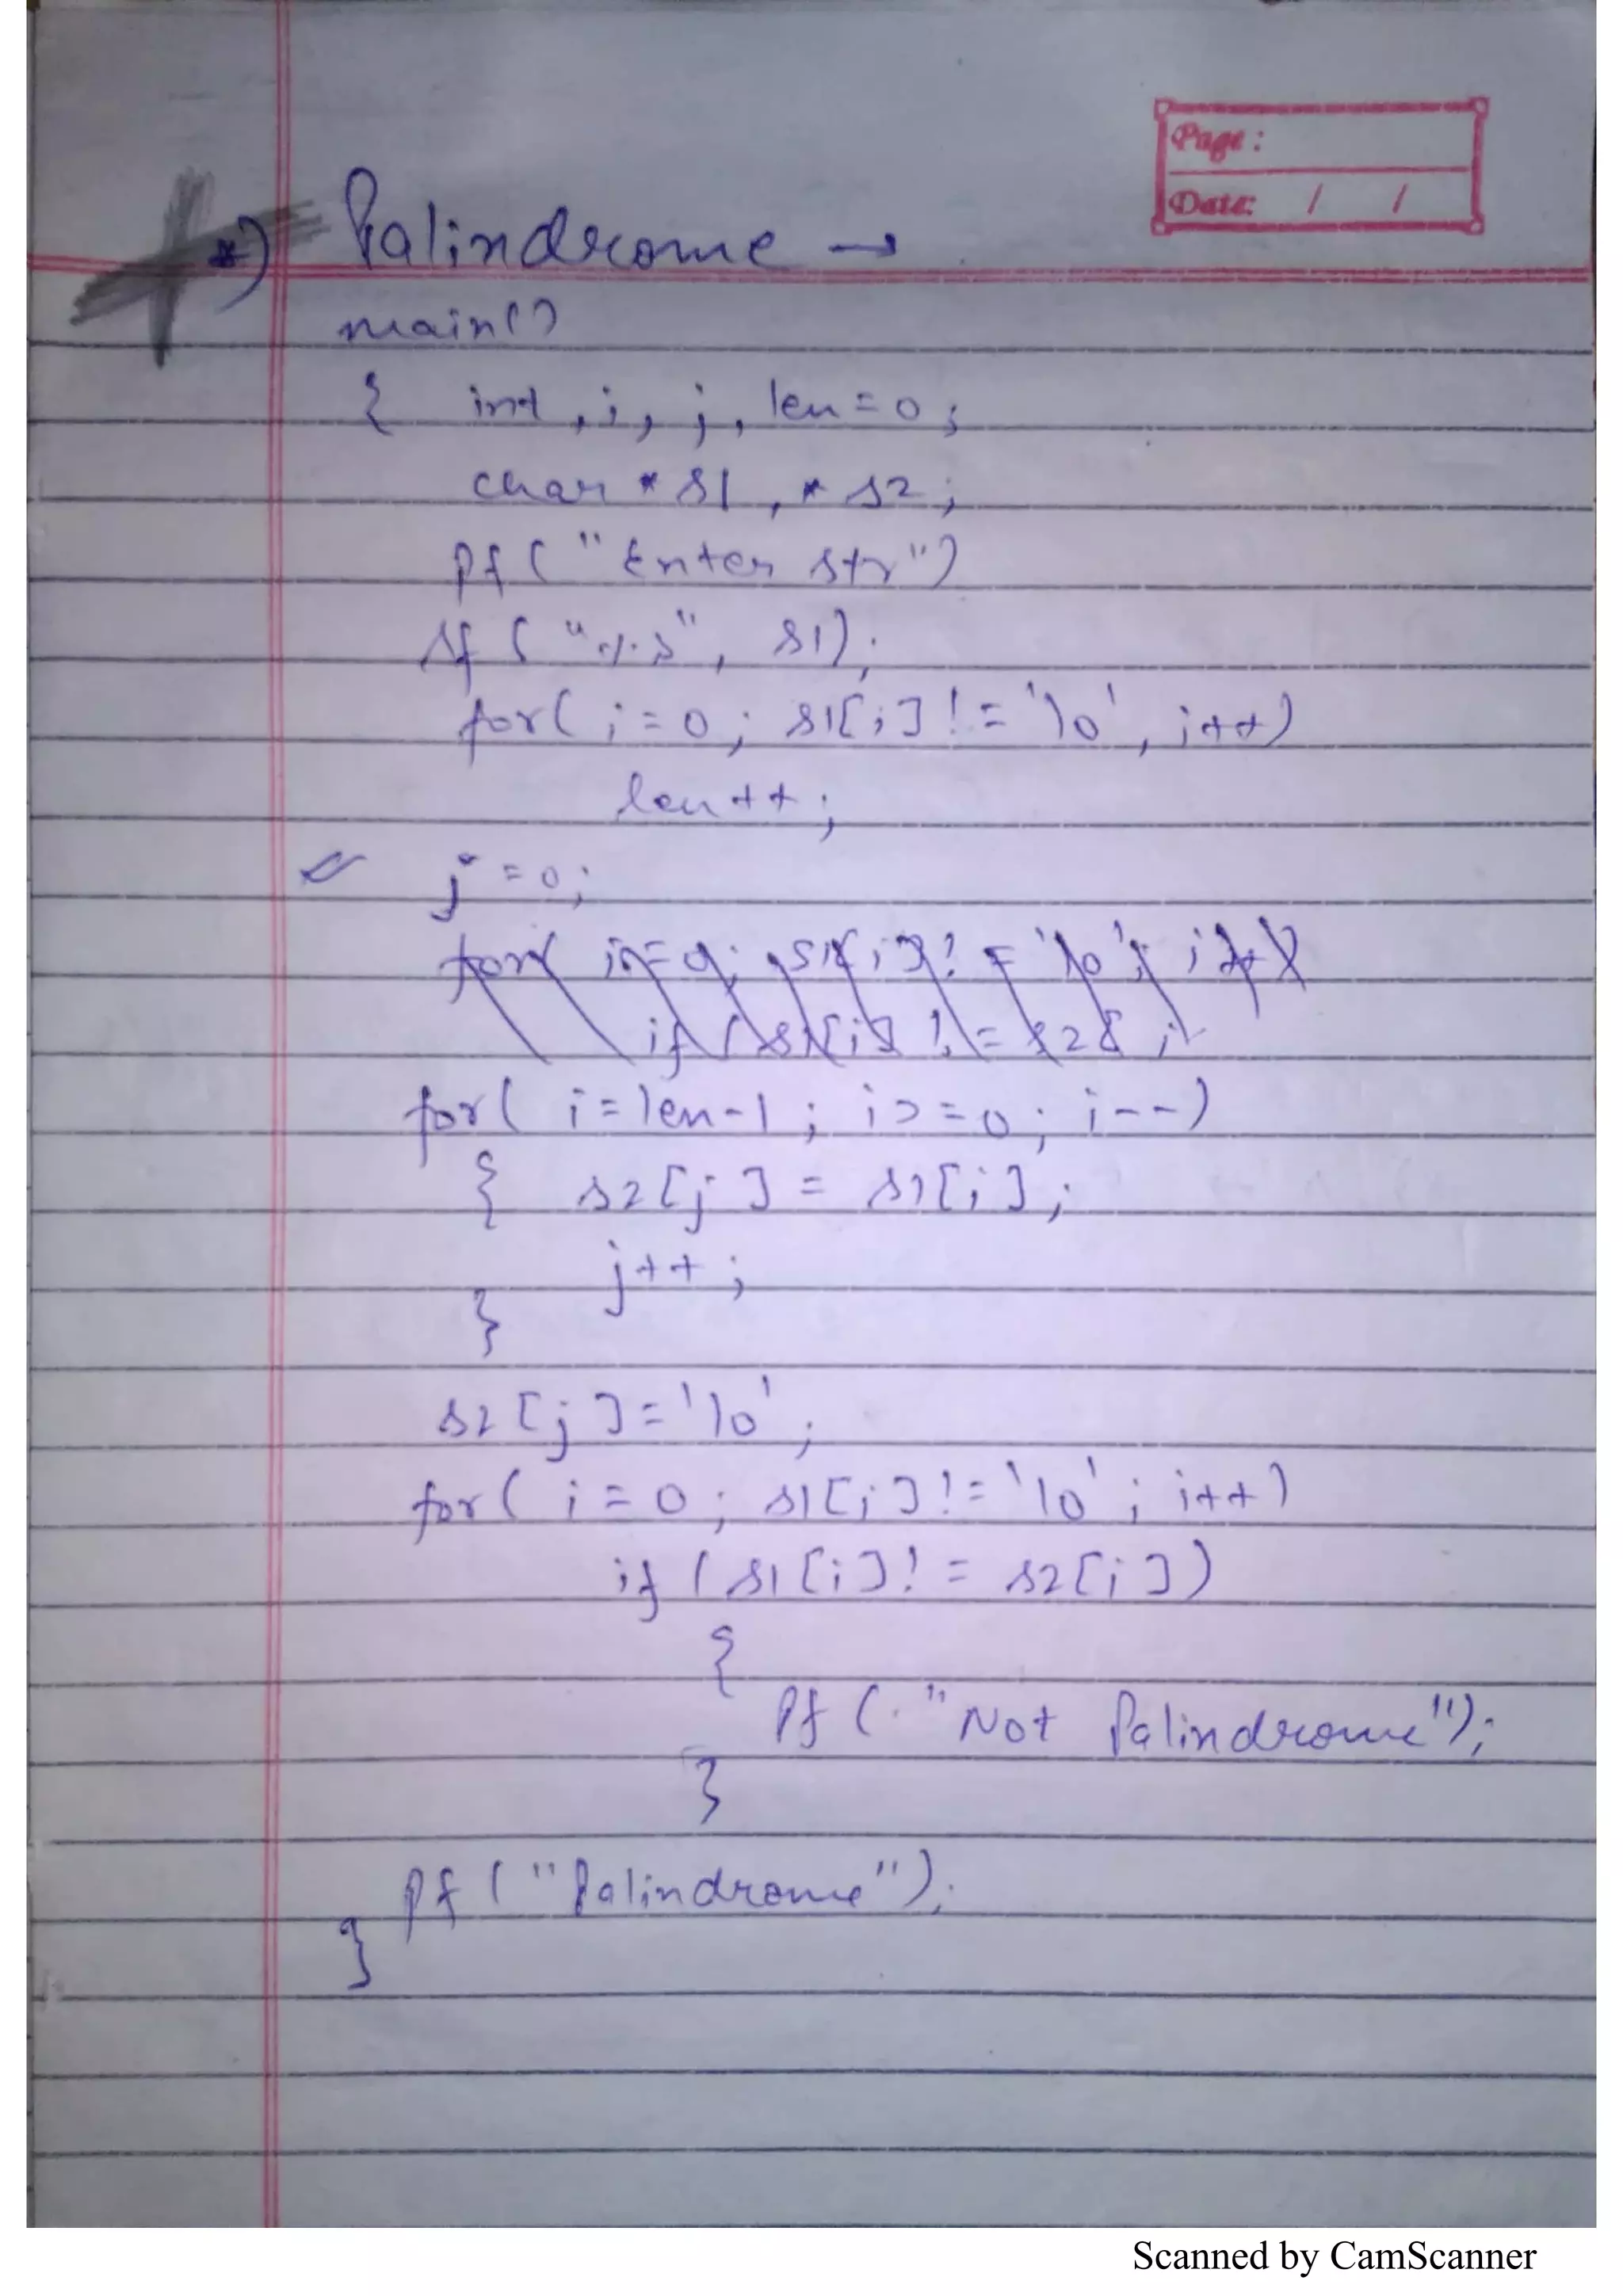 Page :
Date: / /
*) Palindrome →
main()
{ int , i, j, len = 0 ;
char * s1 , * s2 ;
pf ( " Enter str " )
sf ( " %s " , s1 ) ;
for ( i = 0 ; s1[i] != '\0' , i++ )
len ++ ;
j = 0 ;
for( i = 0; s1[i] != '\0'; i++)
if ( s1[i] != s2[ i
for( i = len-1 ; i >= 0 ; i-- )
{ s2[j] = s1[i] ;
j++ ;
}
s2[j] = '\0' ;
for ( i = 0 ; s1[i] != '\0' ; i++ )
if ( s1[i] != s2[i] )
{
Pf ( " Not Palindrome " ) ;
}
pf ( " Palindrome " ) ;
}
Scanned by CamScanner